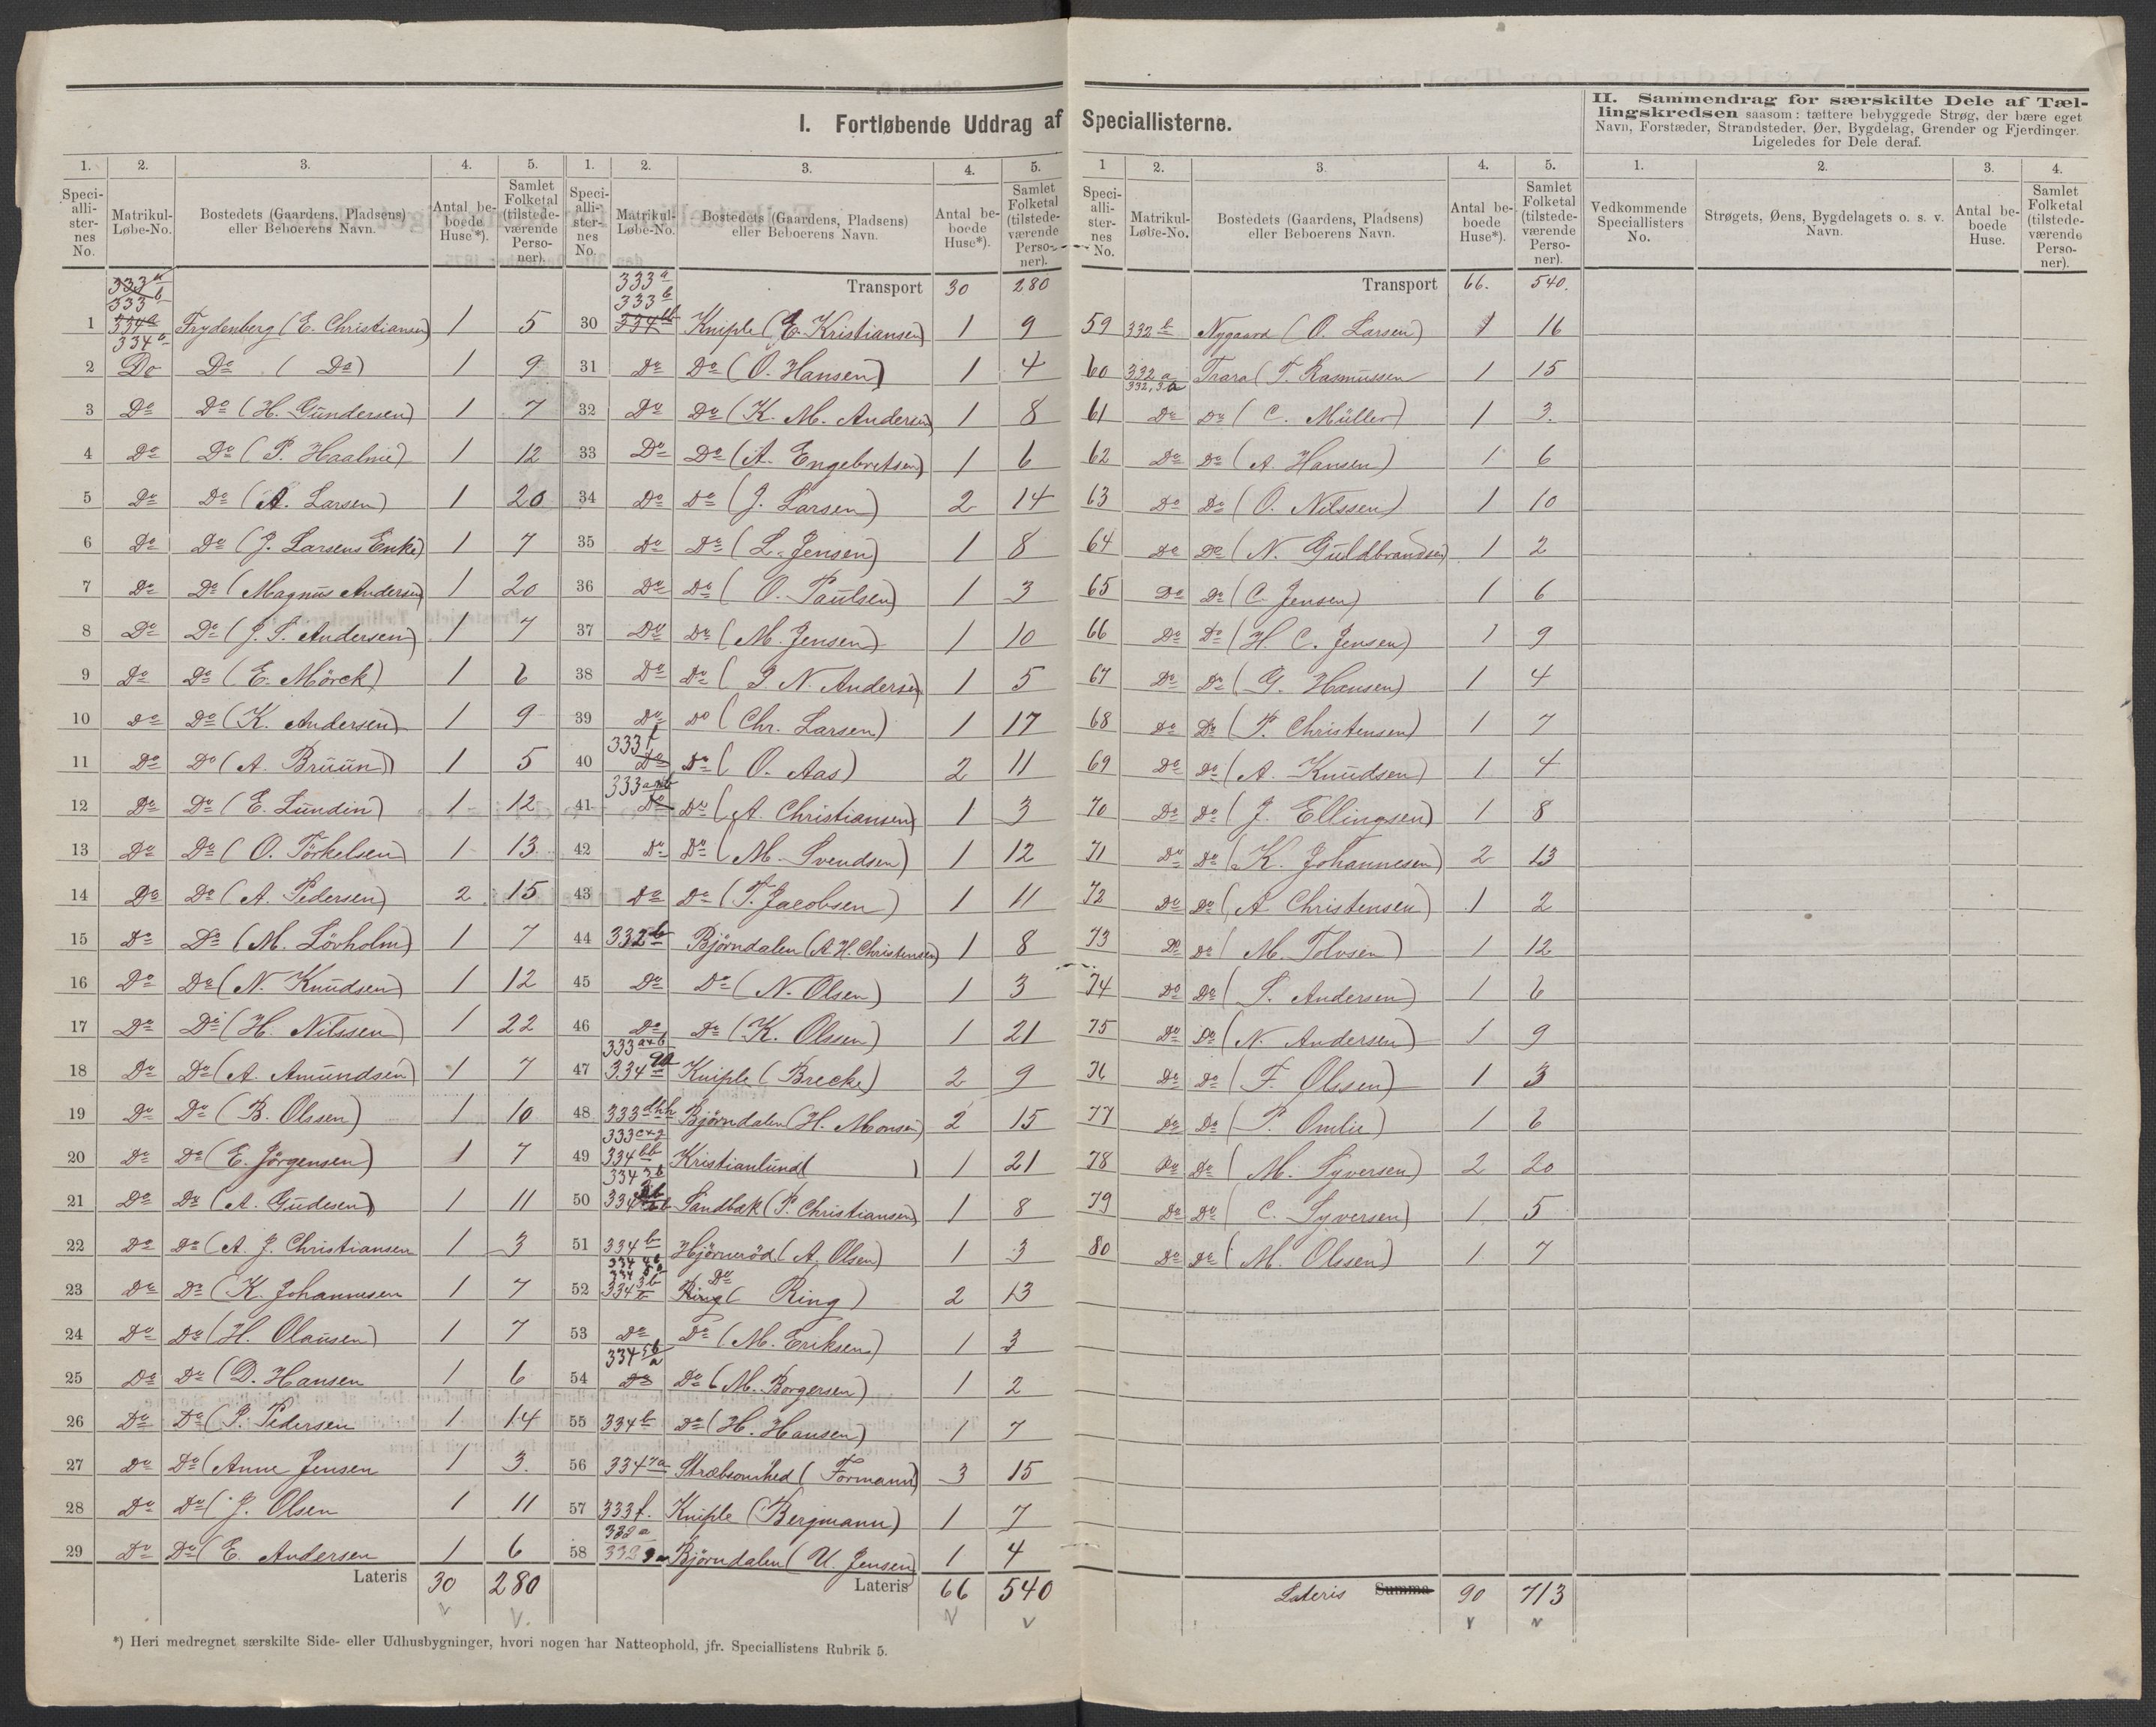 I. Fortløbende Uddrag af Speciallisterne.
1. 2. 3. 4. 5.
Speciallisternes No. Matrikul-Løbe-No. Bostedets (Gaardens, Pladsens) eller Beboerens Navn. Antal beboede Huse*). Samlet Folketal (tilstedeværende Personer).
333a
333b
334a
334a
1 Frydenberg (E. Christiansen) 1 5
2 Do Do (Do) 1 9
3 Do Do (H. Gundersen) 1 7
4 Do Do (P. Haalne) 1 12
5 Do Do (A. Larsen) 1 20
6 Do Do (J. Larsens Enke) 1 7
7 Do Do (Magnus Andersen) 1 20
8 Do Do (J. S. Andersen) 1 7
9 Do Do (E. Mörck) 1 6
10 Do Do (K. Andersen) 1 9
11 Do Do (A. Bruun) 1 5
12 Do Do (E. Lundin) 1 12
13 Do Do (O. Törkelsen) 1 13
14 Do Do (A. Pedersen) 2 15
15 Do Do (M. Lövholm) 1 7
16 Do Do (N. Knudsen) 1 12
17 Do Do (H. Nilssen) 1 22
18 Do Do (A. Amundsen) 1 7
19 Do Do (B. Olssen) 1 10
20 Do Do (E. Jörgensen) 1 7
21 Do Do (A. Gudesen) 1 11
22 Do Do (A. J. Christiansen 1 3
23 Do Do (K. Johannesen 1 7
24 Do Do (H. Olausen) 1 7
25 Do Do (D. Hansen 1 6
26 Do Do (P. Pedersen 1 14
27 Do Do (Anne Jensen 1 3
28 Do Do (J. Olsen 1 11
29 Do Do (E. Andersen 1 6
Lateris 30 280
1. 2. 3. 4. 5.
Speciallisternes No. Matrikul-Løbe-No. Bostedets (Gaardens, Pladsens) eller Beboerens Navn. Antal beboede Huse*). Samlet Folketal (tilstedeværende Personer).
333a Transport 30 280
333b
30 Kniple (E. Kristiansen) 1 9
31 Do Do (O. Hansen) 1 4
32 Do Do (K. M. Andersen) 1 8
33 Do Do (A. Engebretsen) 1 6
34 Do Do (J. Larsen) 2 14
35 Do Do (L. Jensen) 1 8
36 Do Do (O. Paulsen) 1 3
37 Do Do (M. Jensen) 1 10
38 Do Do (P. N. Andersen) 1 5
39 Do Do (Chr. Larsen) 1 17
333f
40 Do Do (O. Aas) 2 11
333a+b
41 Do Do (A. Christiansen) 1 3
42 Do Do (M. Svendsen) 1 12
43 Do Do (T. Jacobsen) 1 11
44 332b Bjørndalen (A. H. Christensen) 1 8
45 Do Do (N. Olsen) 1 3
46 Do Do (K. Olssen) 1 21
333a+b
47 334 Kniple (Brecke) 2 9
48 333 Bjørndalen (H. Monsen) 2 15
333c+g
49 334bb Kristianlund ( ) 1 21
334 3b
50 334 Sandbæk (P. Christiansen) 1 8
51 334b Hjørneröd (A. Olsen) 1 3
52 334 Ring Do (Ring) 2 13
53 Do Do (M. Eriksen) 1 3
54 Do Do (M. Borgersen) 1 2
55 334b Do (H. Hansen) 1 7
56 334 7a Stræbsomhed (Formann) 3 15
57 333f. Kniple (Bergmann) 1 7
332a
58 332 Bjørndalen (U. Jensen) 1 4
Lateris 66 540
*) Heri medregnet særskilte Side- eller Udhusbygninger, hvori nogen har Natteophold, jfr. Speciallistens Rubrik 5.
1 2. 3. 4. 5.
Speciallisternes No. Matrikul-Løbe-No. Bostedets (Gaardens, Pladsens) eller Beboerens Navn. Antal beboede Huse*). Samlet Folketal (tilstedeværende Personer).
Transport 66. 540.
59 332b Nygaard (O. Larsen) 1 16
60 332a Trara (T. Rasmussen 1 15
332, 3a
61 Do Do (C. Müller) 1 3.
62 Do Do (A. Hansen) 1 6
63 Do Do (O. Nilssen) 1 10
64 Do Do (N. Guldbrandsen) 1 2
65 Do Do (C. Jensen) 1 6
66 Do Do (H. C. Jensen) 1 9
67 Do Do (G. Hansen) 1 4
68 Do Do (P. Christensen) 1 7
69 Do Do (A. Knudsen) 1 4
70 Do Do (J. Ellingsen) 1 8
71 Do Do (K. Johannesen) 2 13
72 Do Do (A Christensen) 1 2
73 Do Do (M. Tolvsen) 1 12
74 Do Do (S. Andersen) 1 6
75 Do Do (N. Andersen) 1 9
76 Do Do (F. Olssen) 1 3
77 Do Do (P. Omlie) 1 6
78 Do Do (M. Syversen) 2 20
79 Do Do (C. Syversen) 1 5
80 Do Do (M. Olssen) 1 7
Lateris Summa 90 713
II. Sammendrag for særskilte Dele af Tæl-
lingskredsen saasom: tættere bebyggede Strøg, der bære eget
Navn, Forstæder, Strandsteder, Øer, Bygdelag, Grender og Fjerdinger.
Ligeledes for Dele deraf.
1. 2. 3. 4.
Vedkommende Speciallisters No. Strøgets, Øens, Bygdelagets o. s. v. Navn. Antal beboede Huse. Samlet Folketal (tilstedeværende Personer).